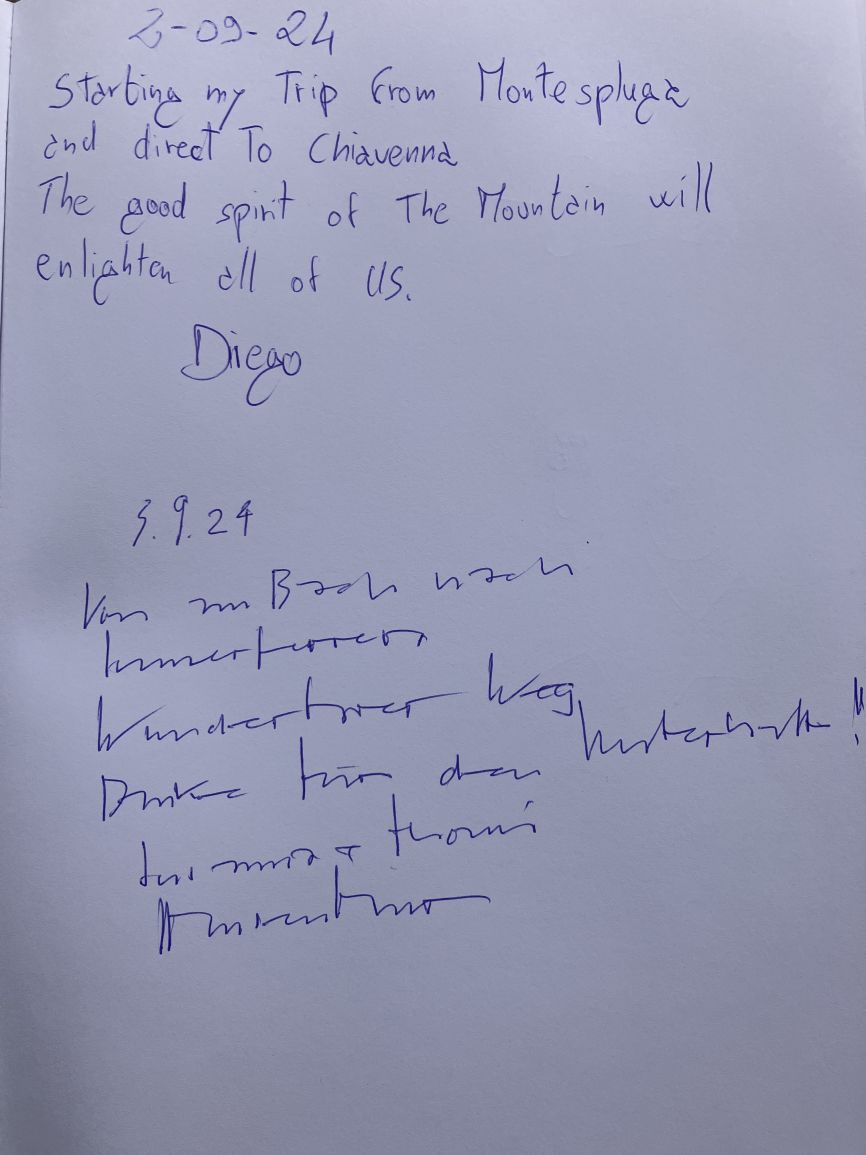 2-09-24
Starting my Trip from Montespluga
and direct To Chiavenna
The good spirit of The Mountain will
enlighten all of us.
Diego
3.9.24
Von Bach nach
Wunderbarer Weg
Danke für den Unterhalt!!